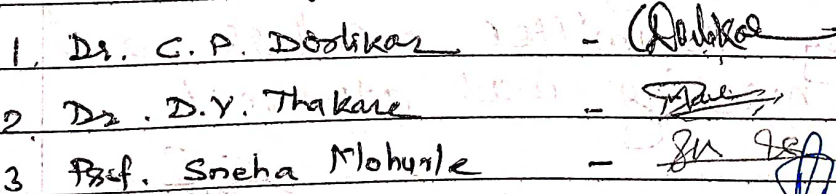 1. Dr. C. P. Dorlikar -
2. Dr. D.V. Thakare -
3 Prof. Sneha Mohurle -